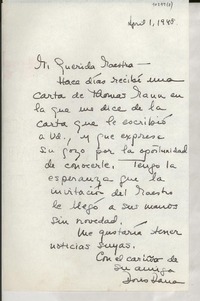 April 1, 1948
Mi Querida Maestra —
Hace días recibí una
carta de Thomas Mann en
la que me dice de la
carta que le escribió
a Ud., y que expresa
su gozo por la oportunidad
de conocerle. Tengo la
esperanza que la
invitación del Maestro
le llegó a sus manos
sin novedad.
Me gustaría tener
noticias suyas.
Con el cariño de
su amiga
Doris Dana